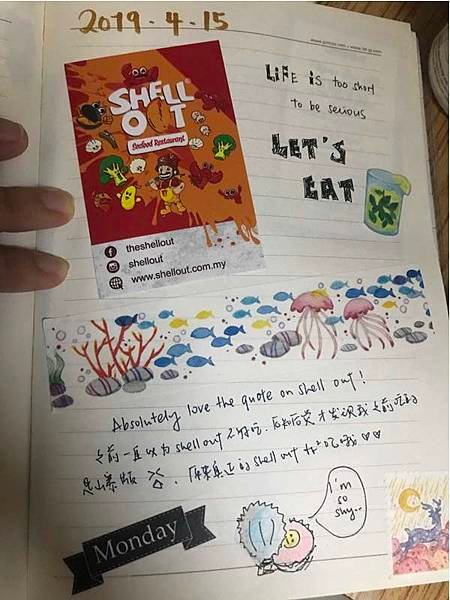 2019.4.15
LiFE iS too short
to be serious
LET'S
EAT
SHELL
OUT
Seafood Restaurant
theshellout
shellout
www.shellout.com.my
Absolutely love the quote on shell out!
之前一直以为 shell out 不好吃，后知后觉才发现我之前吃的
是山寨版，原来真正的 shell out 好吃哦♡♡
I'm
so
shy..
Monday